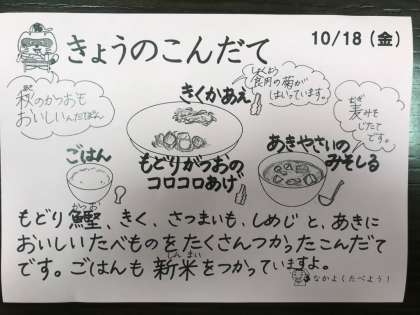 きょうのこんだて
10/18(金)
秋のかつおも
おいしいんだぽん
きくかあえ
しょくよう
食用の菊が
はいっています。
むぎ
麦みそ
じたて
です。
ごはん
もどりがつおの
コロコロあげ
あきやさいの
みそしる
もどり鰹、きく、さつまいも、しめじと、あきに
かつお
おいしいたべものをたくさんつかったこんだて
です。ごはんも新米をつかっていますよ。
しんまい
なかよくたべよう!